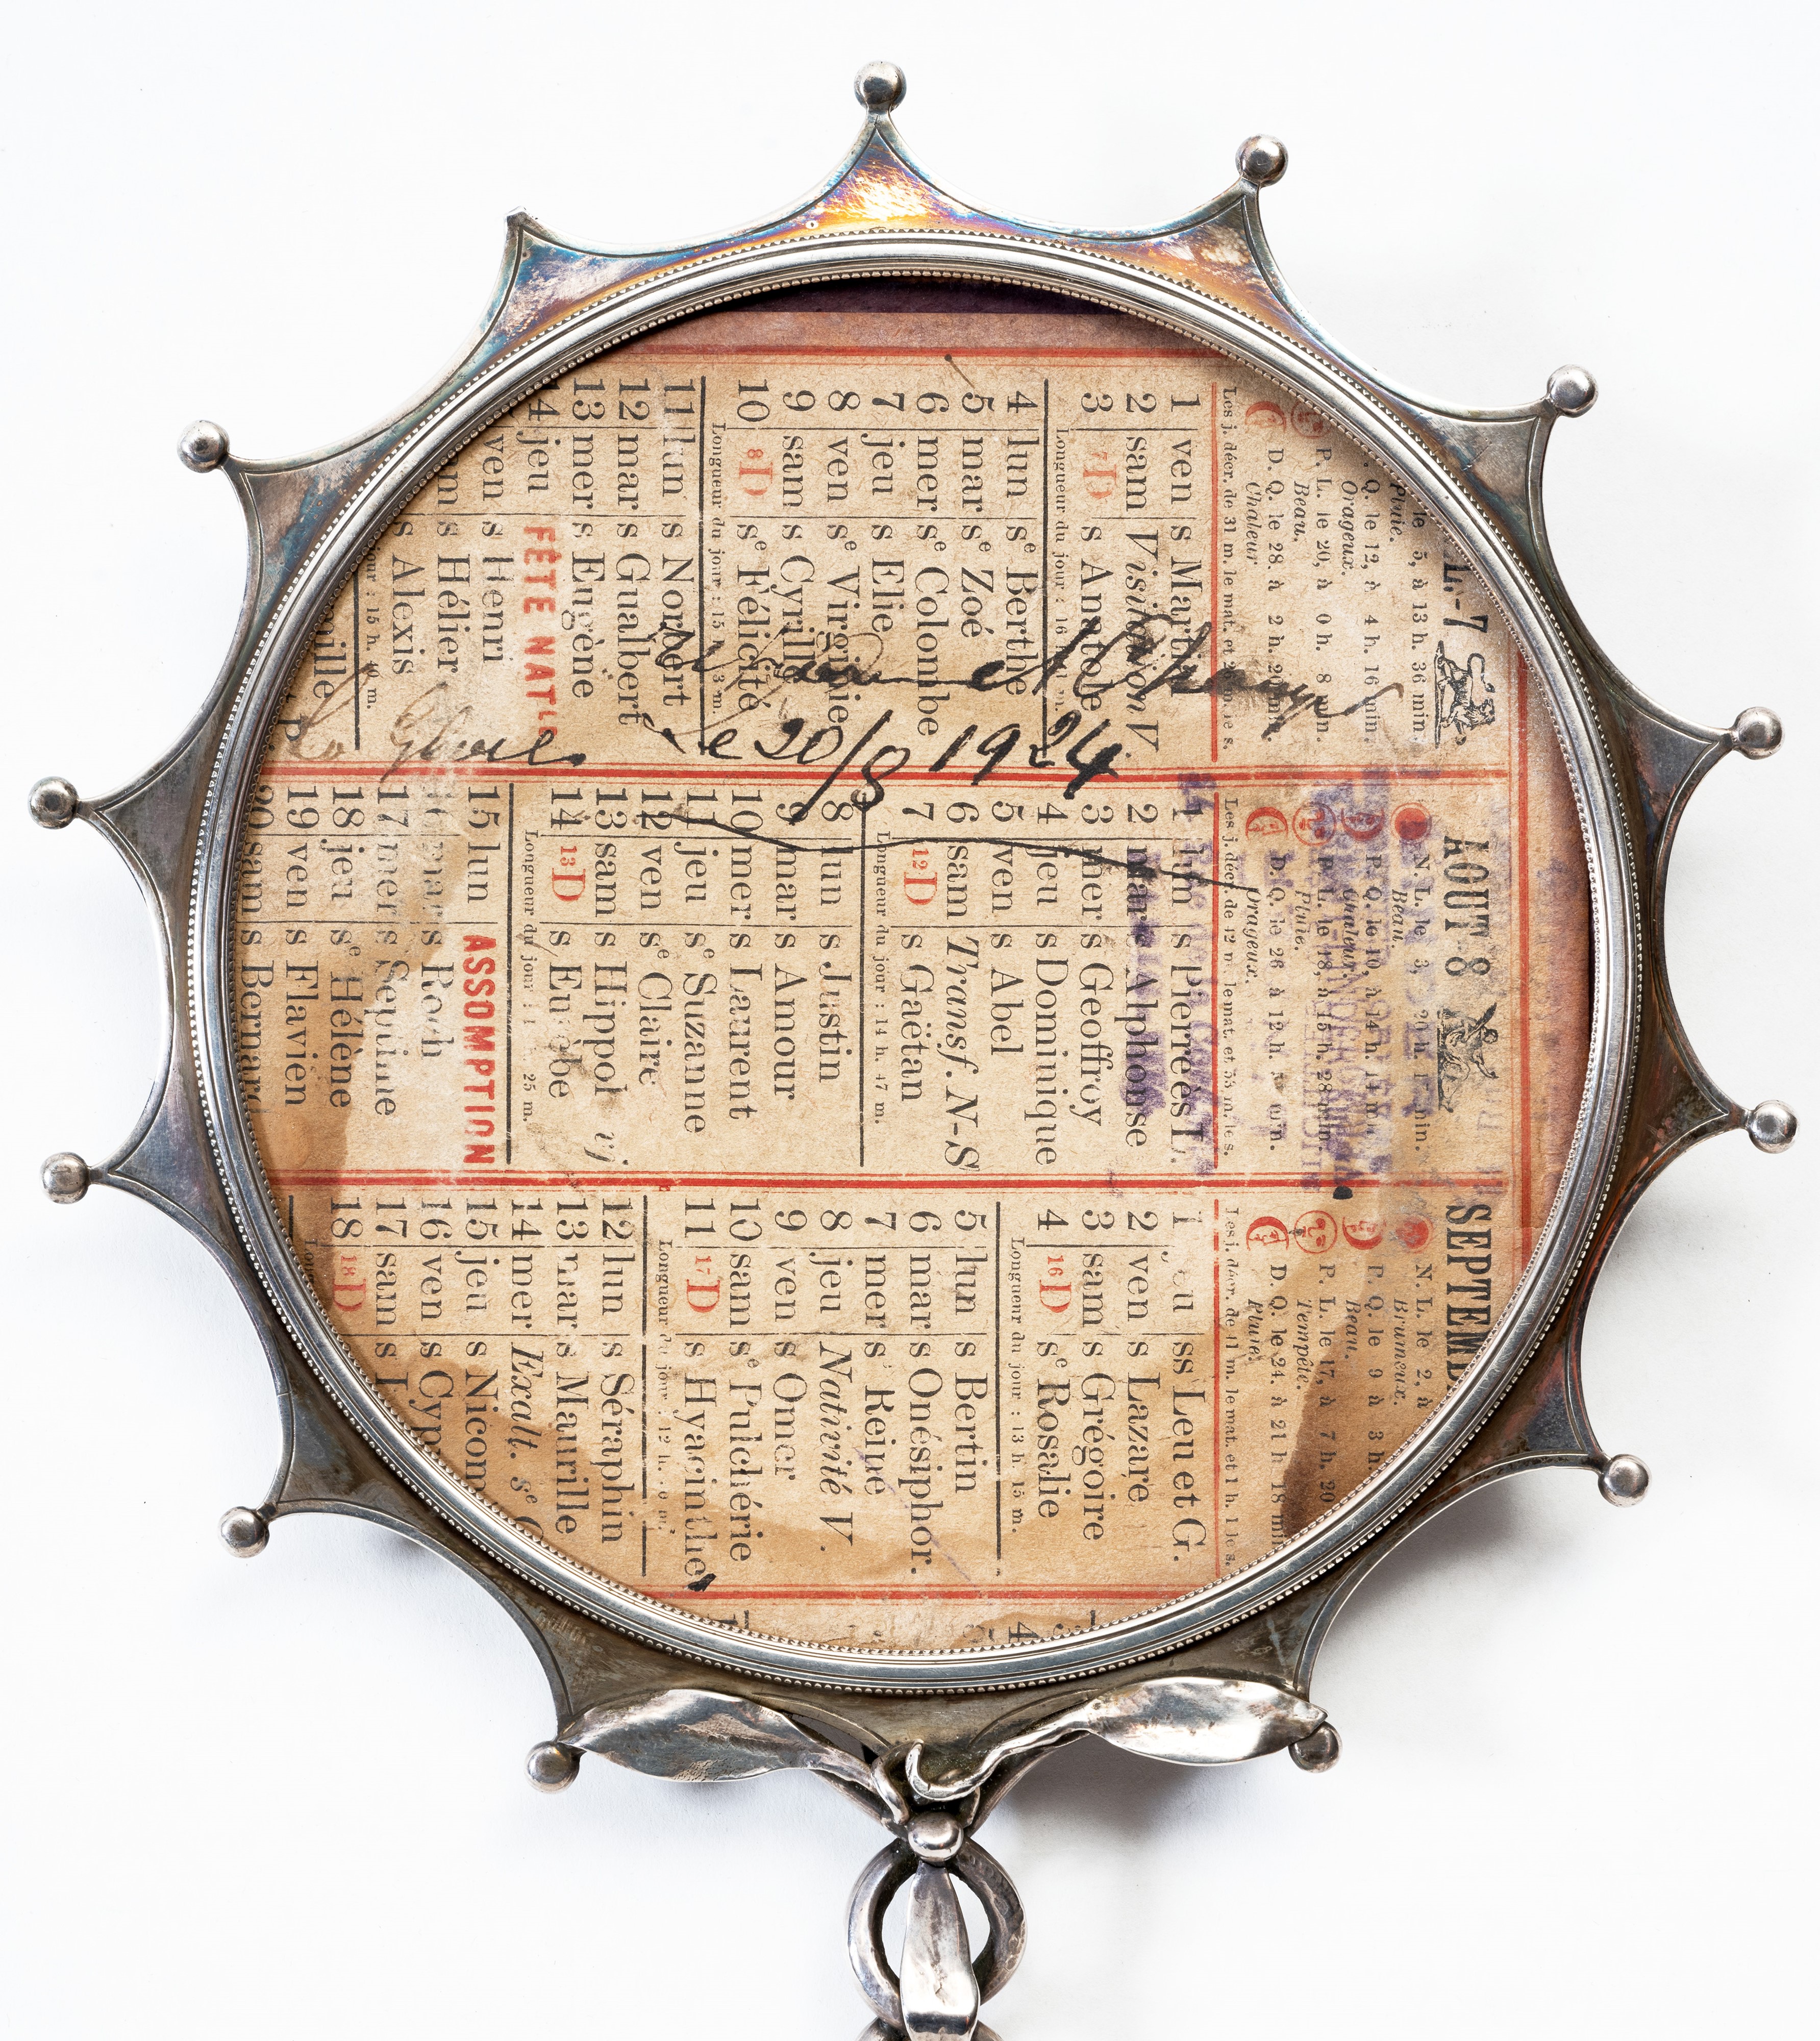 L.-7
le 5, à 13 h. 36 min.
Pluie.
Q. le 12, à 4 h. 16 min.
Orageux.
P. L. le 20, à 0 h. 8 min.
Beau.
D. Q. le 28 à 2 h.
Chaleur
Les j. décr. de 31 m. le mat. et
1 ven s Martin
2 sam Visitation V.
3 7 D s Anatole
Longueur du jour : 16 h.
4 lun sᵉ Berthe
5 mar sᵉ Zoé
6 mer sᵉ Colombe
7 jeu s Elie
8 ven sᵉ Virginie
9 sam s Cyrille
10 8 D sᵉ Félicité
Longueur du jour : 15 h. 3 m.
11 lun s Norbert
12 mar s Gualbert
13 mer s Eugène
14 jeu FÊTE NATˡᵉ
ven s Henri
am s Hélier
s Alexis
jour : 15 h. m.
mille
le 20/8 1924
AOUT 8
N. L. le 3, à 20 h. min.
Beau.
P. Q. le 10, à 14 h. 14 min.
Chaleur.
P. L. le 18, à 15 h. 28 min.
Pluie.
D. Q. le 26 à 12 h. min.
Orageux.
Les j. décr. de 42 m. le mat. et 53 m. le s.
1 lun s Pierre ès L.
2 mar s Alphonse
3 mer s Geoffroy
4 jeu s Dominique
5 ven s Abel
6 sam Transf. N-S
7 12 D s Gaëtan
Longueur du jour : 14 h. 47 m.
8 lun s Justin
9 mar s Amour
10 mer s Laurent
11 jeu sᵉ Suzanne
12 ven sᵉ Claire
13 sam s Hippol vj
14 13 D s Eusèbe
Longueur du jour : h. 25 m.
15 lun ASSOMPTION
mar s Roch
17 mer s Septime
18 jeu sᵉ Hélène
19 ven s Flavien
20 sam s Bernard
SEPTEMB
N. L. le 2, à
Brumeux.
P. Q. le 9 à 3 h
Beau.
P. L. le 17, à 7 h. 20
Tempête.
D. Q. le 24, à 21 h 18 mi
Pluie.
Les j. décr. de 41 m. le mat. et 1 h. 1 le s.
1 jeu ss Leu et G.
2 ven s Lazare
3 sam s Grégoire
4 16 D sᵉ Rosalie
Longueur du jour : 13 h. 15 m.
5 lun s Bertin
6 mar s Onésiphor.
7 mer sᵉ Reine
8 jeu Nativité V.
9 ven s Omer
10 sam sᵉ Pulchérie
11 17 D s Hyacinthe
Longueur du jour : 12 h.
12 lun s Séraphin
13 mar s Maurille
14 mer Exalt. sᵉ C
15 jeu s Nicom
16 ven s Cyp
17 sam s L
18 18 D
Long
4